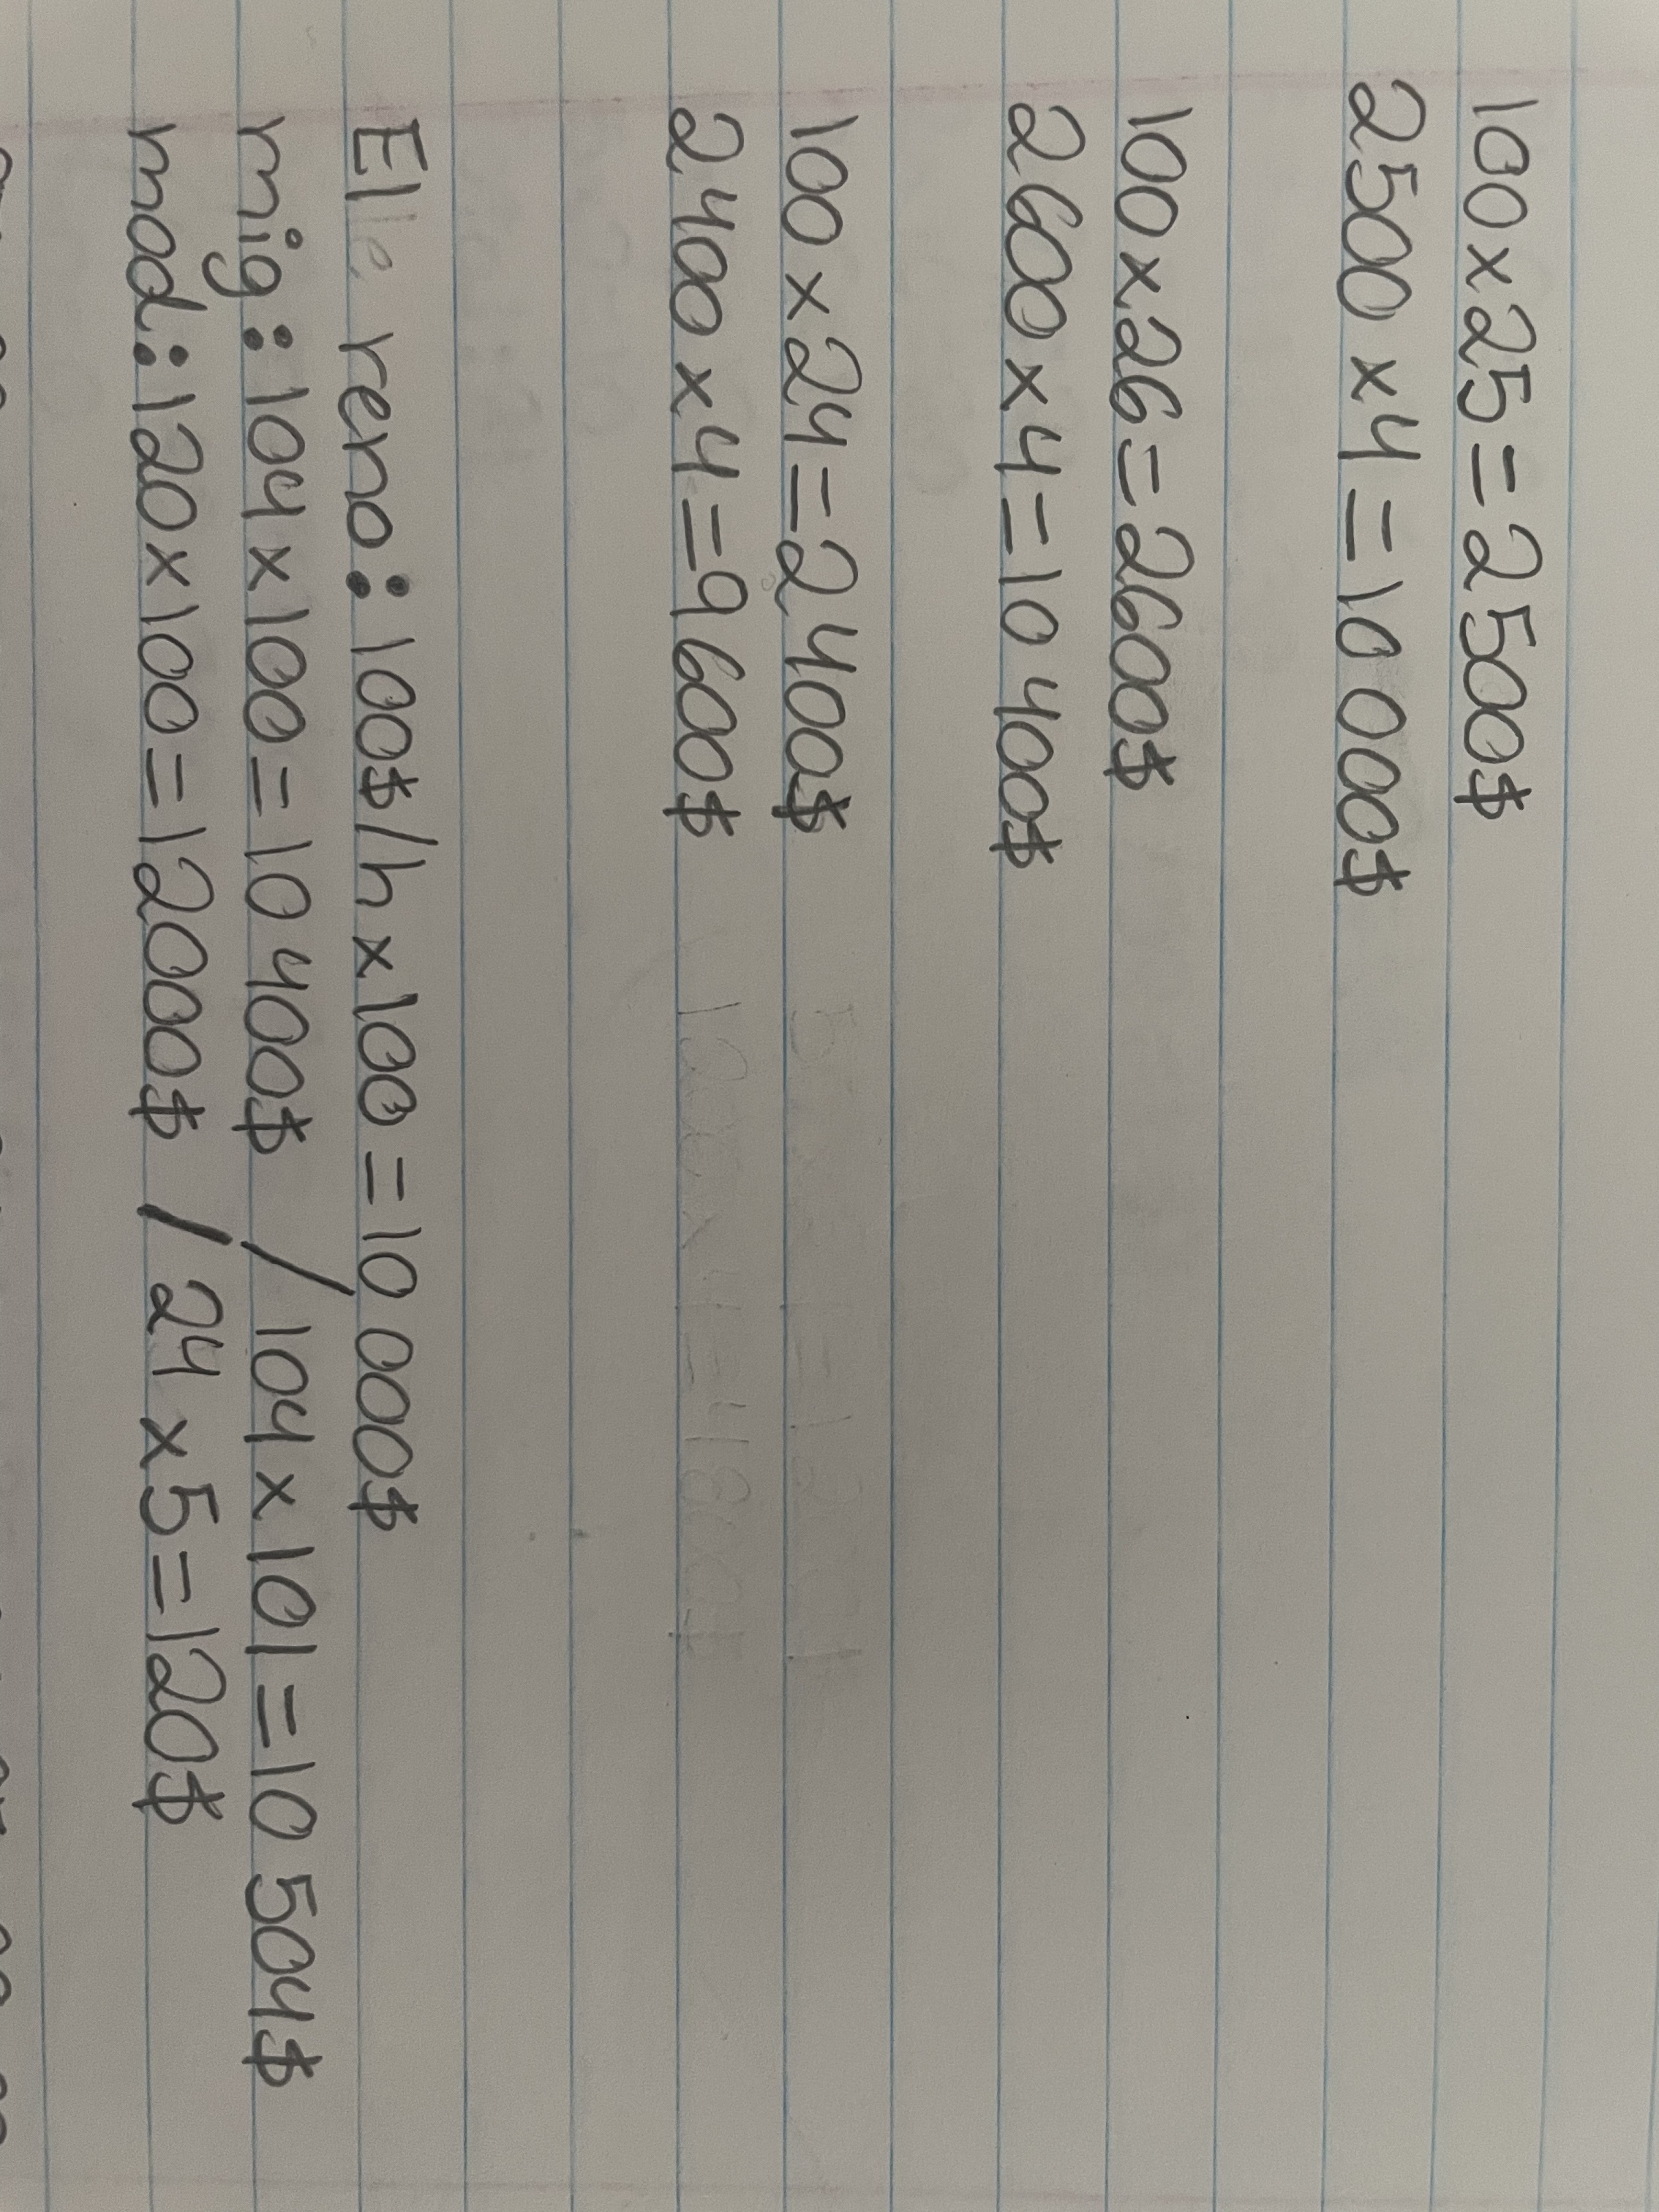 100 x 25 = 2 500$
2500 x 4 = 10 000$
100 x 26 = 2600$
2 600 x 4 = 10 400$
100 x 24 = 2 400$
2 400 x 4 = 9 600$
reno : 100$/h x 100 = 10 000$
mig : 104 x 100 = 10 400$ / 104 x 101 = 10 504$
mod : 120 x 100 = 12000$ / 24 x 5 = 120$